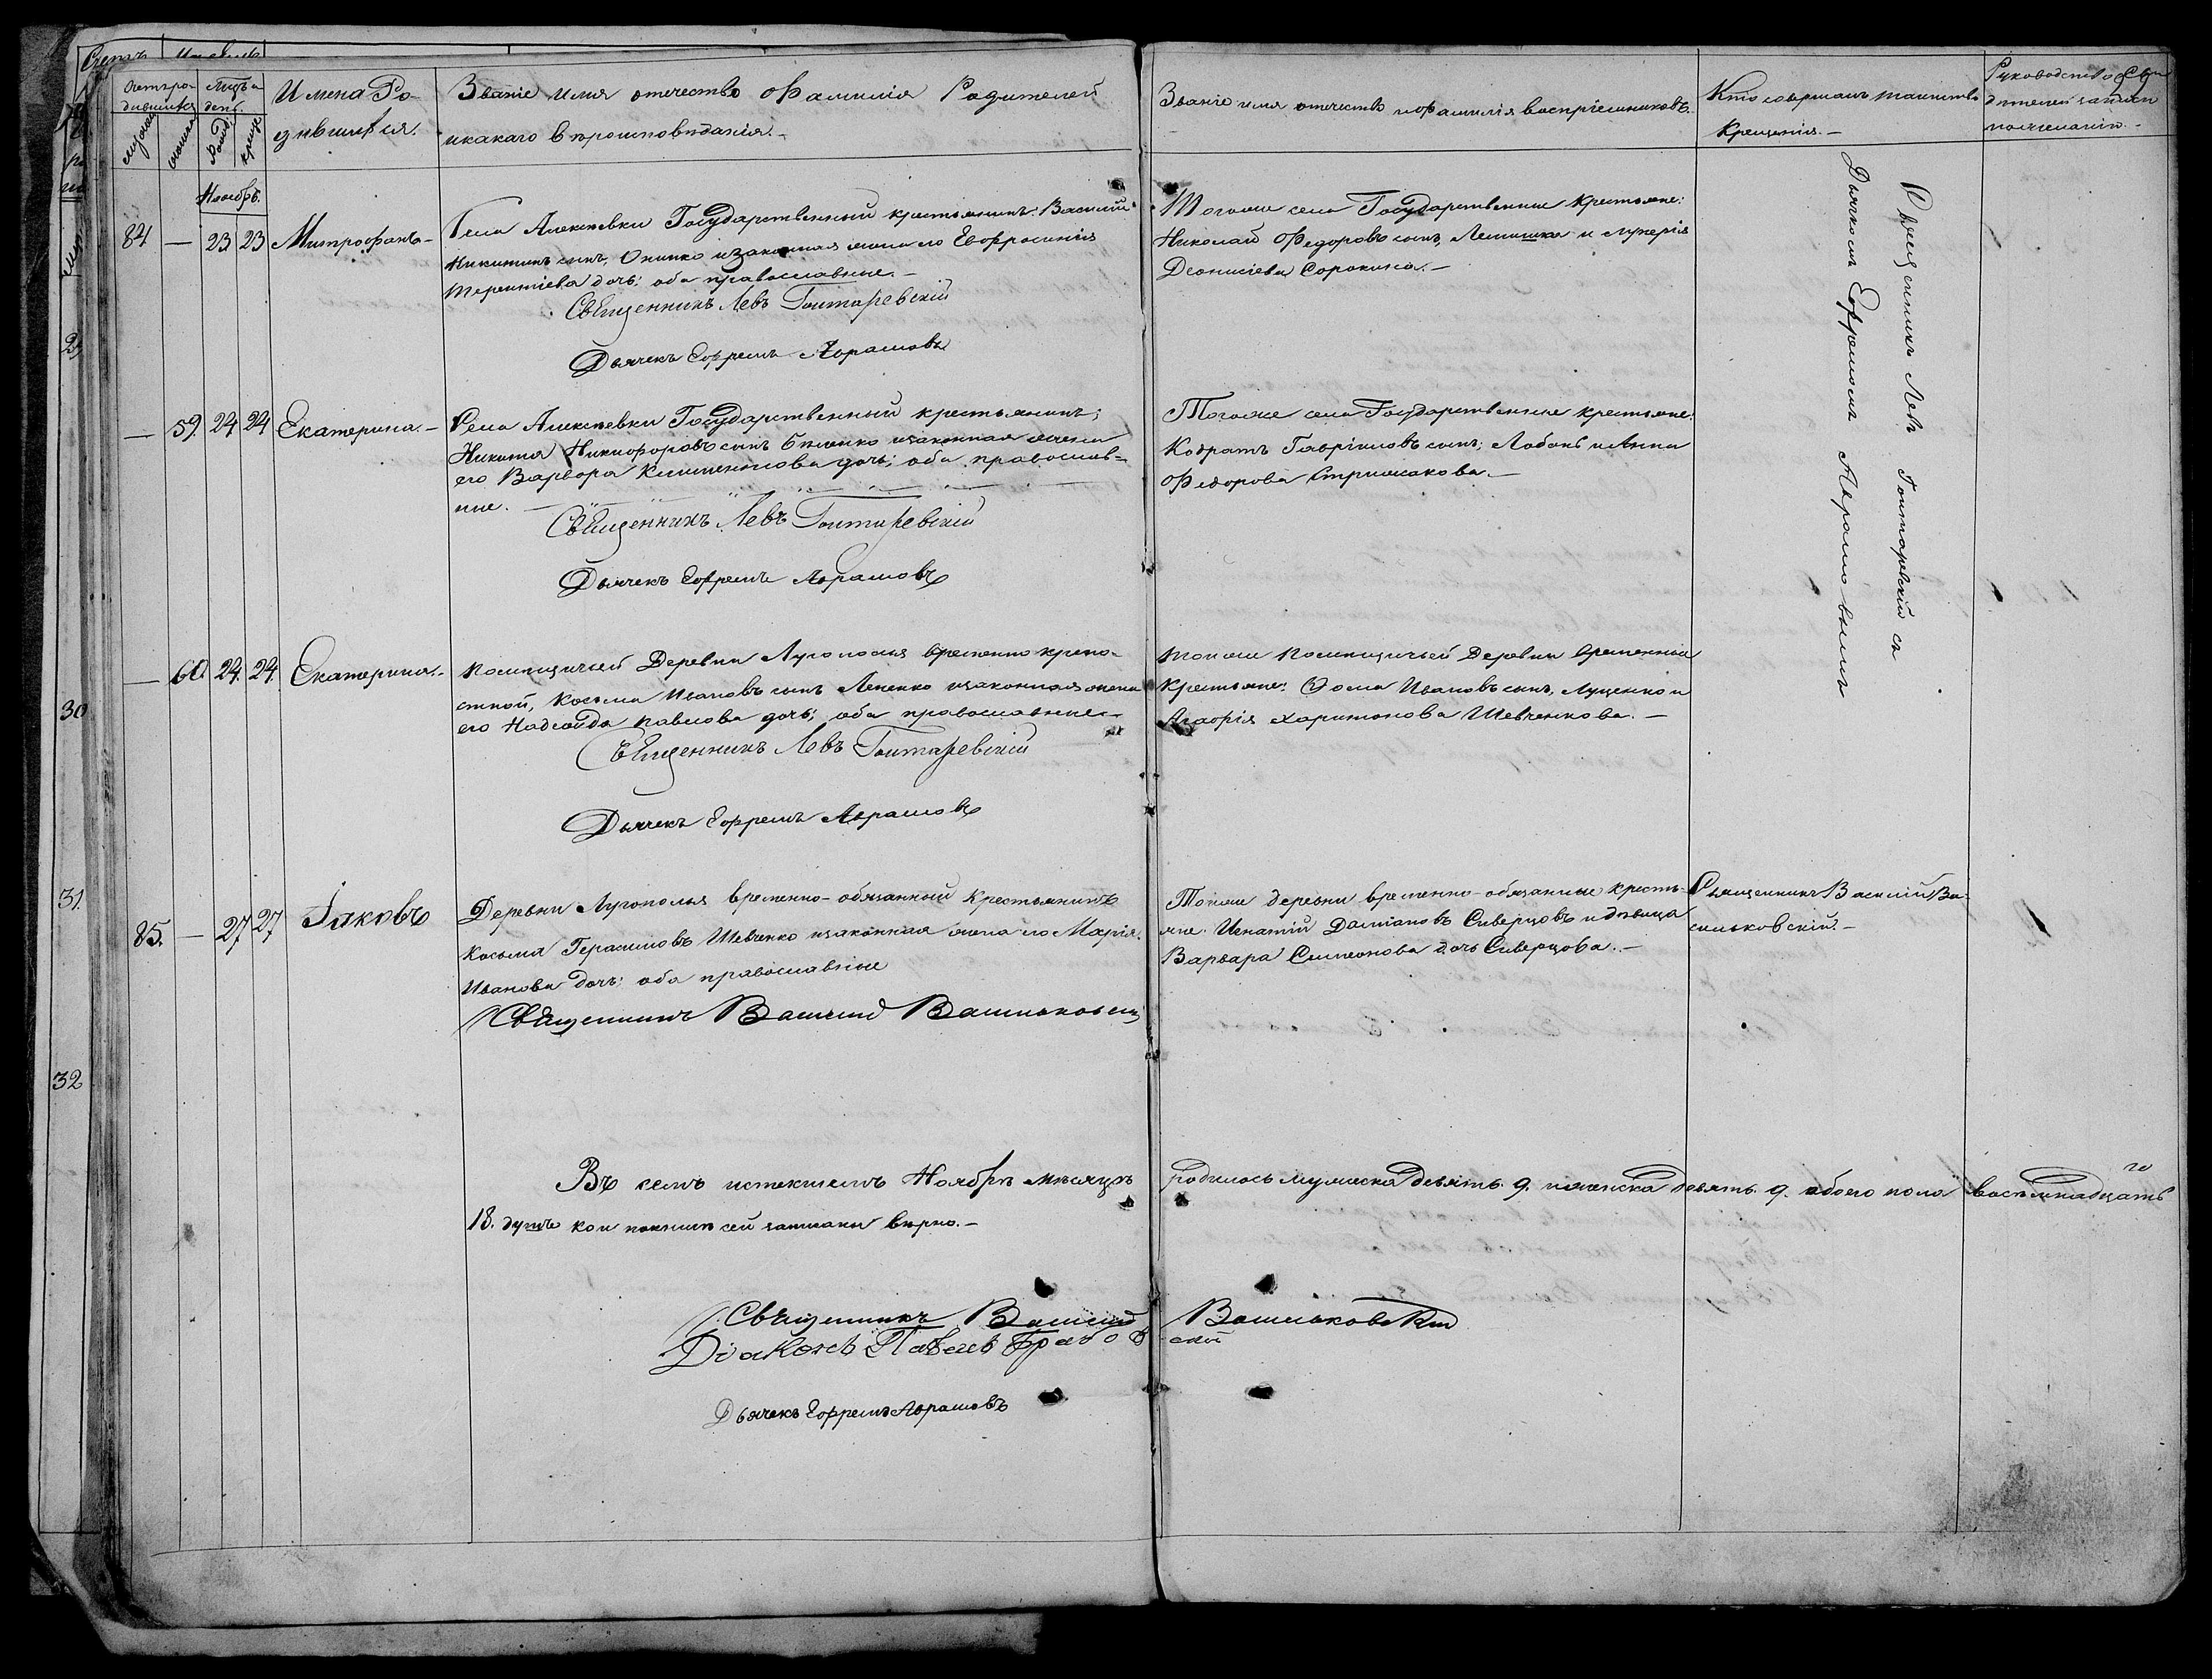 Счетъ ро-
дившихся
мужска
женска
Мѣсяцъ и
день
Рожд.
Крещ.
Имена Ро-
дившихся.
Званіе имя отечество Фамилія Родителей
и какаго вѣроисповѣданія.-
Званіе имя отечество и фамилія воспріемниковъ.
Кто совершалъ таинство
Крещенія.-
Рукоприкладство сви-
дѣтелей записи
по желанію.-
Ноябрь.
84 — 23 23 Митрофанъ-
Села Алексѣевки Государственный крестьянинъ: Василій
Никитинъ сынъ, Онипко и законная жена его Евфросинія
Терентіева дочь; оба православные.-
Священникъ Левъ Гонтаревскій
Дьячекъ Ефремъ Аврамовъ
Тогоже села Государственные крестьяне:
Николай Федоровъ сынъ, Лемишка и Лукерія
Діонисіева Сорокина.-
Священникъ Левъ Гонтаревскій съ
Дьячкомъ Ефремомъ Аврамовымъ
— 59. 24 24 Екатерина.-
Села Алексѣевки Государственный крестьянинъ;
Никита Никифоровъ сынъ Бѣленко и законная жена
его Варвора Климентова дочь; оба православ-
ные.
Священникъ Левъ Гонтаревскій
Дьячекъ Ефремъ Аврамовъ
Тогоже села Государственные крестьяне:
Кодратъ Гавріиловъ сынъ; Лобань и Анна
Федорова Стрижакова.-
— 60. 24. 24. Екатерина.-
Помѣщичьей Деревни Лугополья временно крепо-
стной, Косьма Ивановъ сынъ Лепенко и законная жена
его Надежда Павлова дочь; оба православные.-
Священникъ Левъ Гонтаревскій
Дьячекъ Ефремъ Аврамовъ
Тойже Помѣщичьей Деревни временныя
Крестьяне: Фома Ивановъ сынъ, Луценко и
Агафія Харитонова Шевченкова.-
85. — 27 27 Іаковъ
Деревни Лугополья временно-обязанный Крестьянинъ
Косьма Герасимовъ Шевченко и законная жена его Марія
Иванова дочь; оба православные
Священникъ Василій Васильковскій
Тойже деревни временно-обязанные кресть-
яне. Игнатій Даміановъ Сиверцовъ и дѣвица
Варвара Симеонова дочь Сиверцова.-
Священникъ Василій Ва-
сильковскій.-
Въ семъ истекшемъ Ноябрѣ мѣсяцѣ родилось мужеска девять. 9. и женска девять. 9. обоего пола восемнадцать
18. душъ кои по книгѣ сей записаны вѣрно.-
Священникъ Василій Васильковскій
Діаконъ Павелъ Грабовскій
Дьячекъ Ефремъ Аврамовъ
30
31.
32